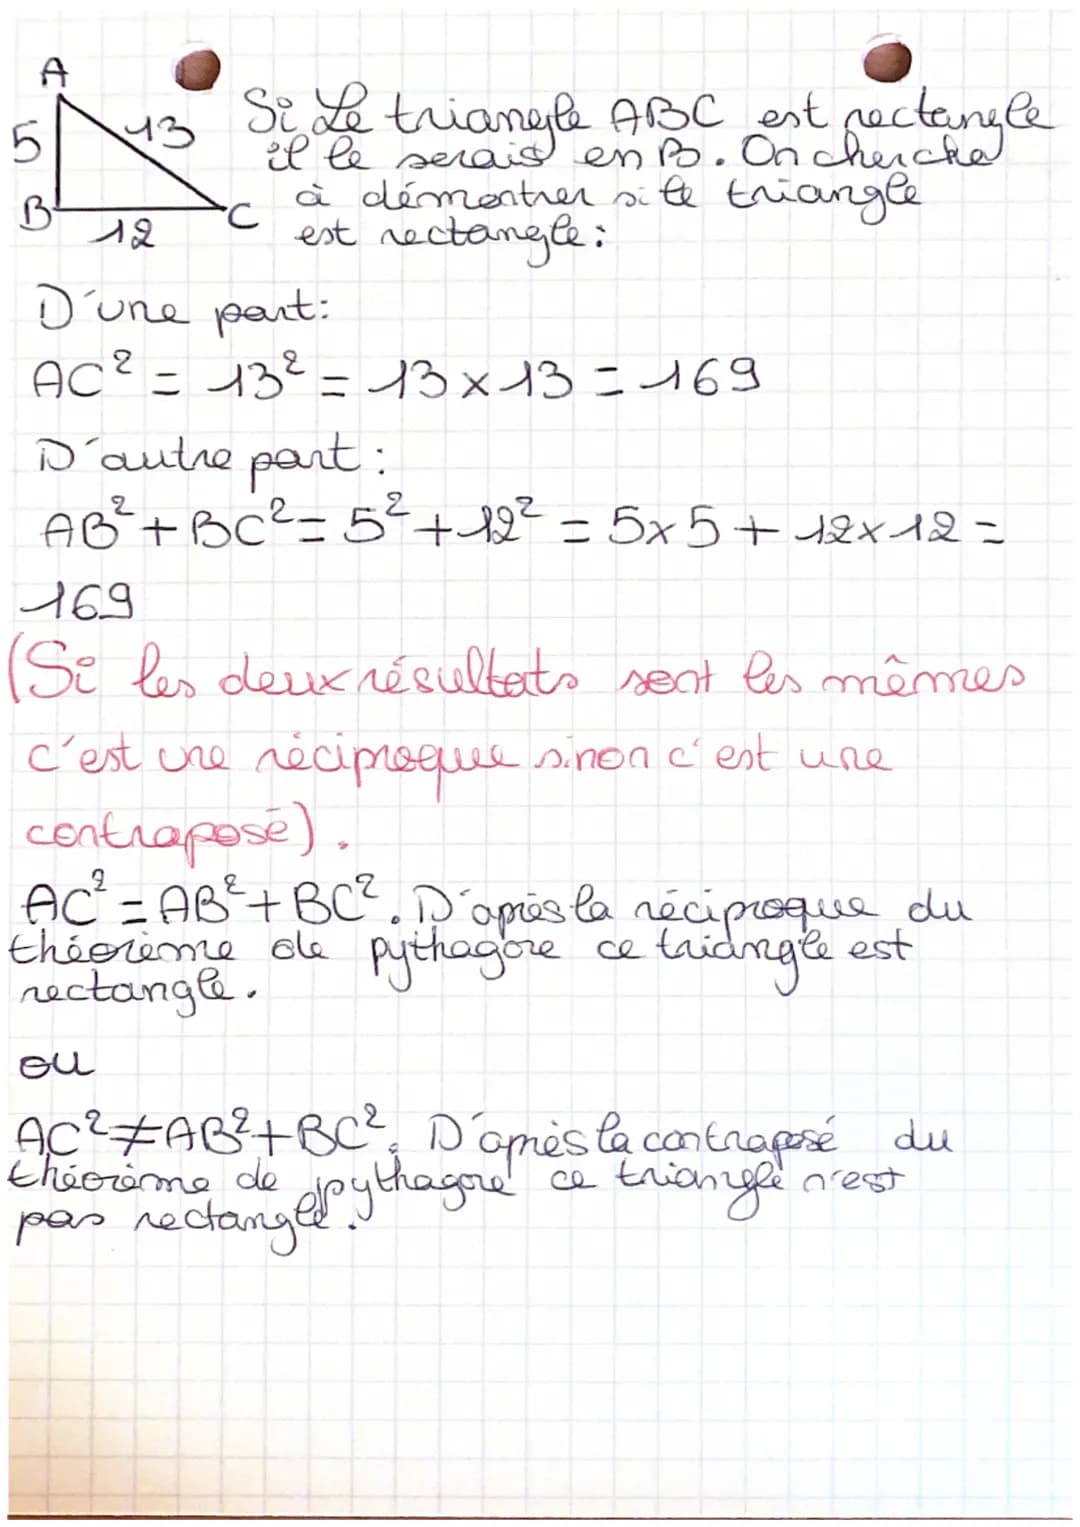 A
5
13
B
12
C
Si Le triangle ABC est rectangle
il le serais en B. On cherche
à démontrer si le triangle
est rectangle :
D'une part :
AC² = 13² = 13 × 13 = 169
D'autre part :
AB² + BC² = 5² + 12² = 5 × 5 + 12 × 12 =
169
(Si les deux résultats sont les mêmes
c'est une réciproque sinon c'est une
contraposé).
AC² = AB² + BC². D'après la réciproque du
théorème de pythagore ce triangle est
rectangle.
ou
AC² ≠ AB² + BC². D'après la contraposé du
théorème de pythagore ce triangle n'est
pas rectangle.